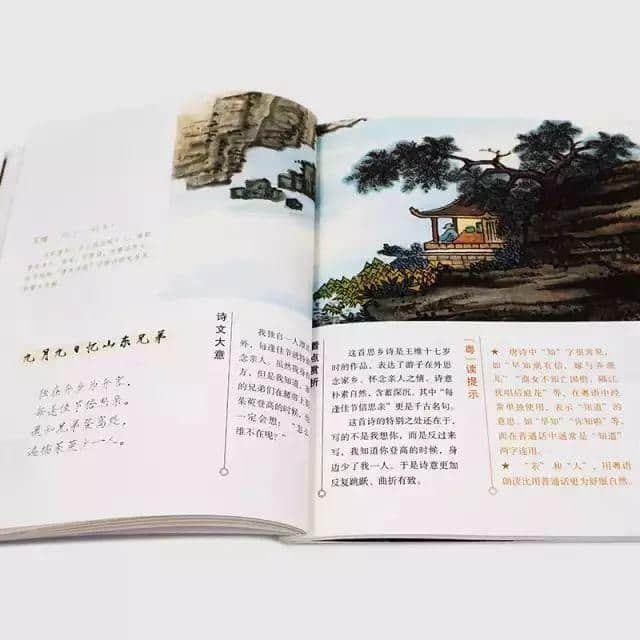 九月九日忆山东兄弟
独在异乡为异客，
每逢佳节倍思亲。
遥知兄弟登高处，
遍插茱萸少一人。
诗文大意
我独自一人漂
外，每逢佳节就特
念亲人。虽然我身
方，但是我知道，
的兄弟们在腰带上
朱萸登高的时候，
一定会想：“怎么
维不在呢？”
点赏析
这首思乡诗是王维十七岁
时的作品，表达了游子在外思
念家乡、怀念亲人之情。诗意
朴素自然，含蓄深沉，其中“每
逢佳节倍思亲”更是千古名句。
这首诗的特别之处还在于，
写的不是我想你，而是反过来
写，我知道你登高的时候，身
边少了我一人。于是诗意更加
反复跳跃、曲折有致。
「粤」读提示
★ 唐诗中“知”字很常见，
如“早知潮有信，嫁与弄潮
儿”“商女不知亡国恨，隔江
犹唱后庭花”等，在粤语中经
常单独使用，表示“知道”的
意思，如“早知”“你知啦”等，
而在普通话中通常是“知道”
两字连用。
★ “亲”和“人”，用粤语
朗读比用普通话更为舒服自然。